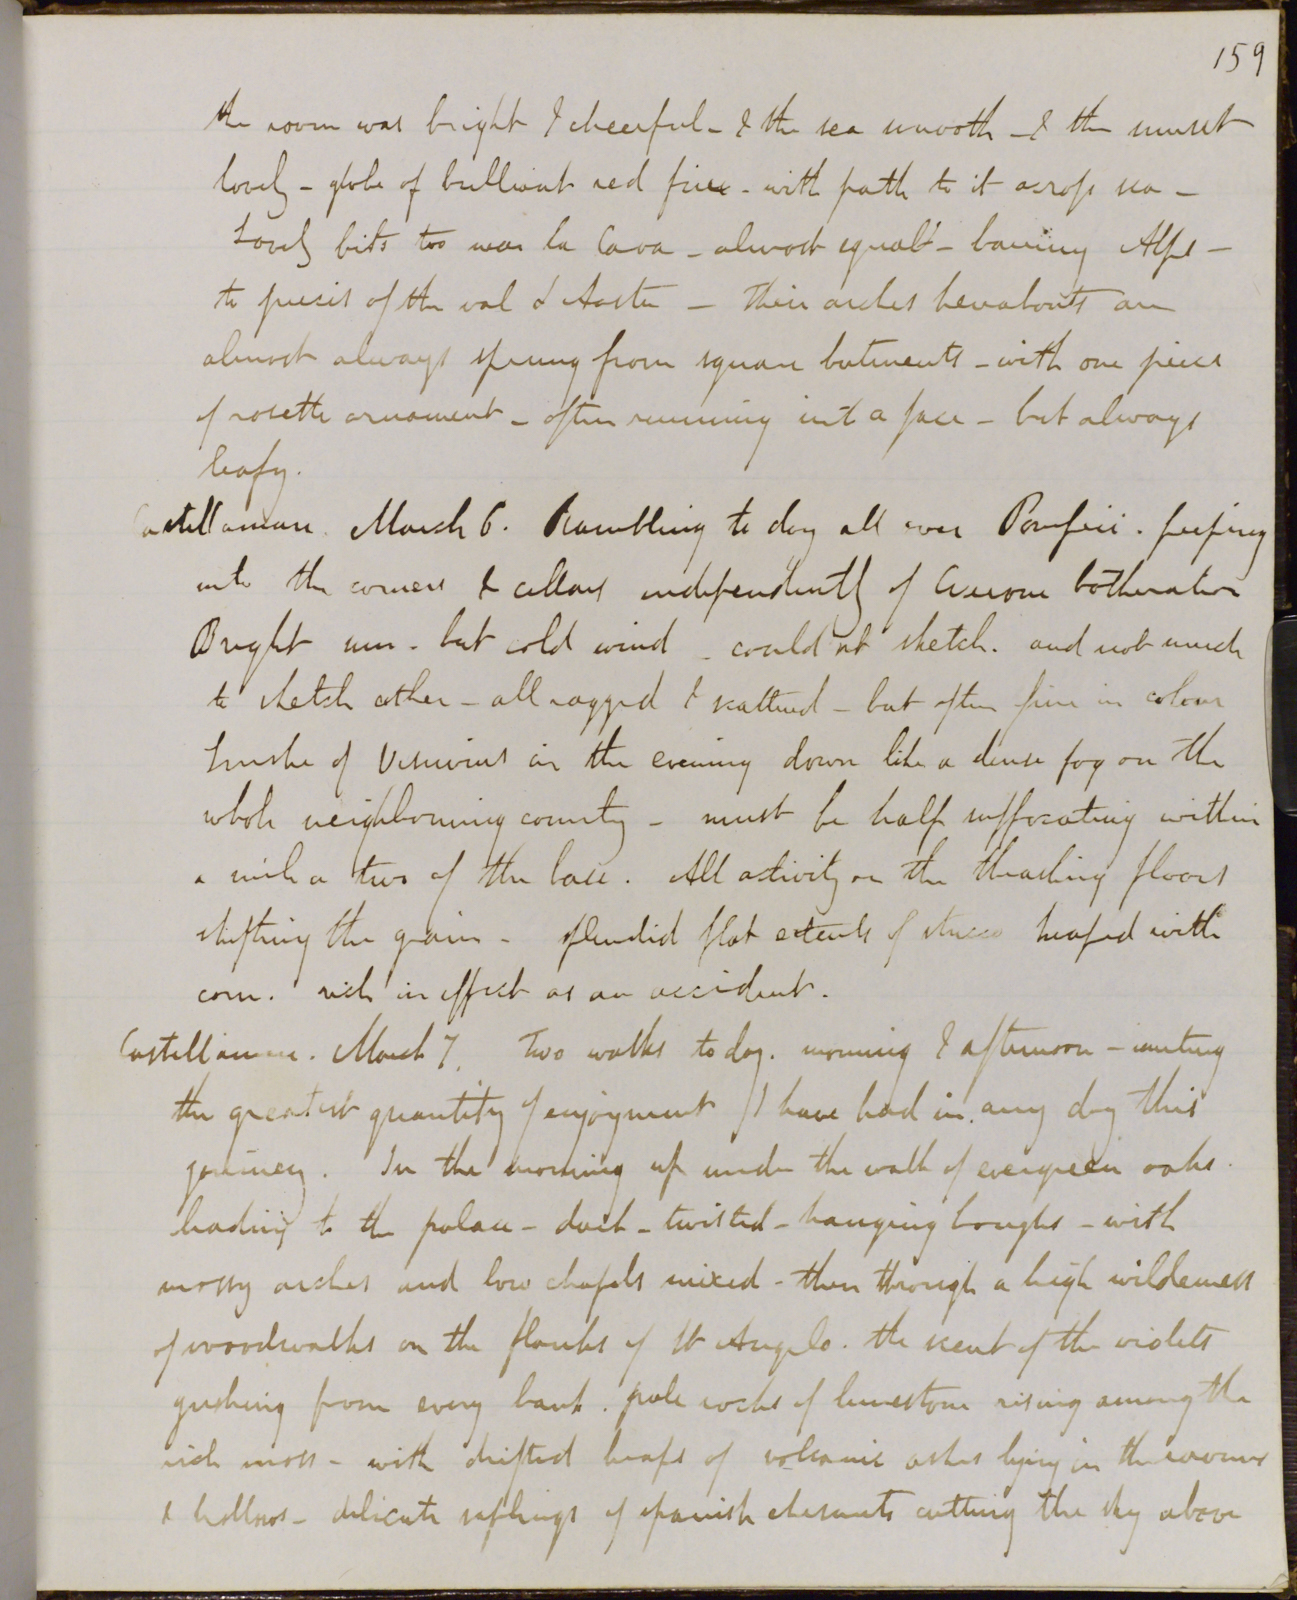 159
the room was bright & cheerful - & the sea smooth - & the sunset
lovely - globe of brilliant red fire - with path to it across sea -
Lovely bits too near la Cava - almost equal - barring Alps -
to pieces of the val d'Aosta - their arches hereabouts are
almost always sprung from square butments - with one piece
of rosette ornament - often running into a face - but always
leafy.
Castellamare. March 6. Rambling to day all over Pompeii. peeping
into the corners & cellars independently of Cicerone botheration
Bright sun. but cold wind - couldn't sketch. and not much
to sketch either - all ragged & scattered - but often fine in colour
Smoke of Vesuvius in the evening down like a dense fog on the
whole neighbouring country - must be half suffocating within
a mile or two of the base. All activity on the thrashing floors
shifting the grain - splendid flat extents of stucco heaped with
corn. rich in effect as an accident.
Castellamare. March 7. Two walks to day. morning & afternoon - uniting
the greatest quantity of enjoyment I have had in any day this
journey. In the morning up under the walk of evergreen oaks
leading to the palace - dark - twisted - hanging boughs - with
mossy arches and low chapels mixed - then through a high wilderness
of woodwalks on the flanks of St Angelo. the scent of the violets
gushing from every bank. pale rocks of limestone rising among the
rich moss - with drifted heaps of volcanic ashes lying in the ravines
& hollows - delicate saplings of spanish chesnuts cutting the sky above